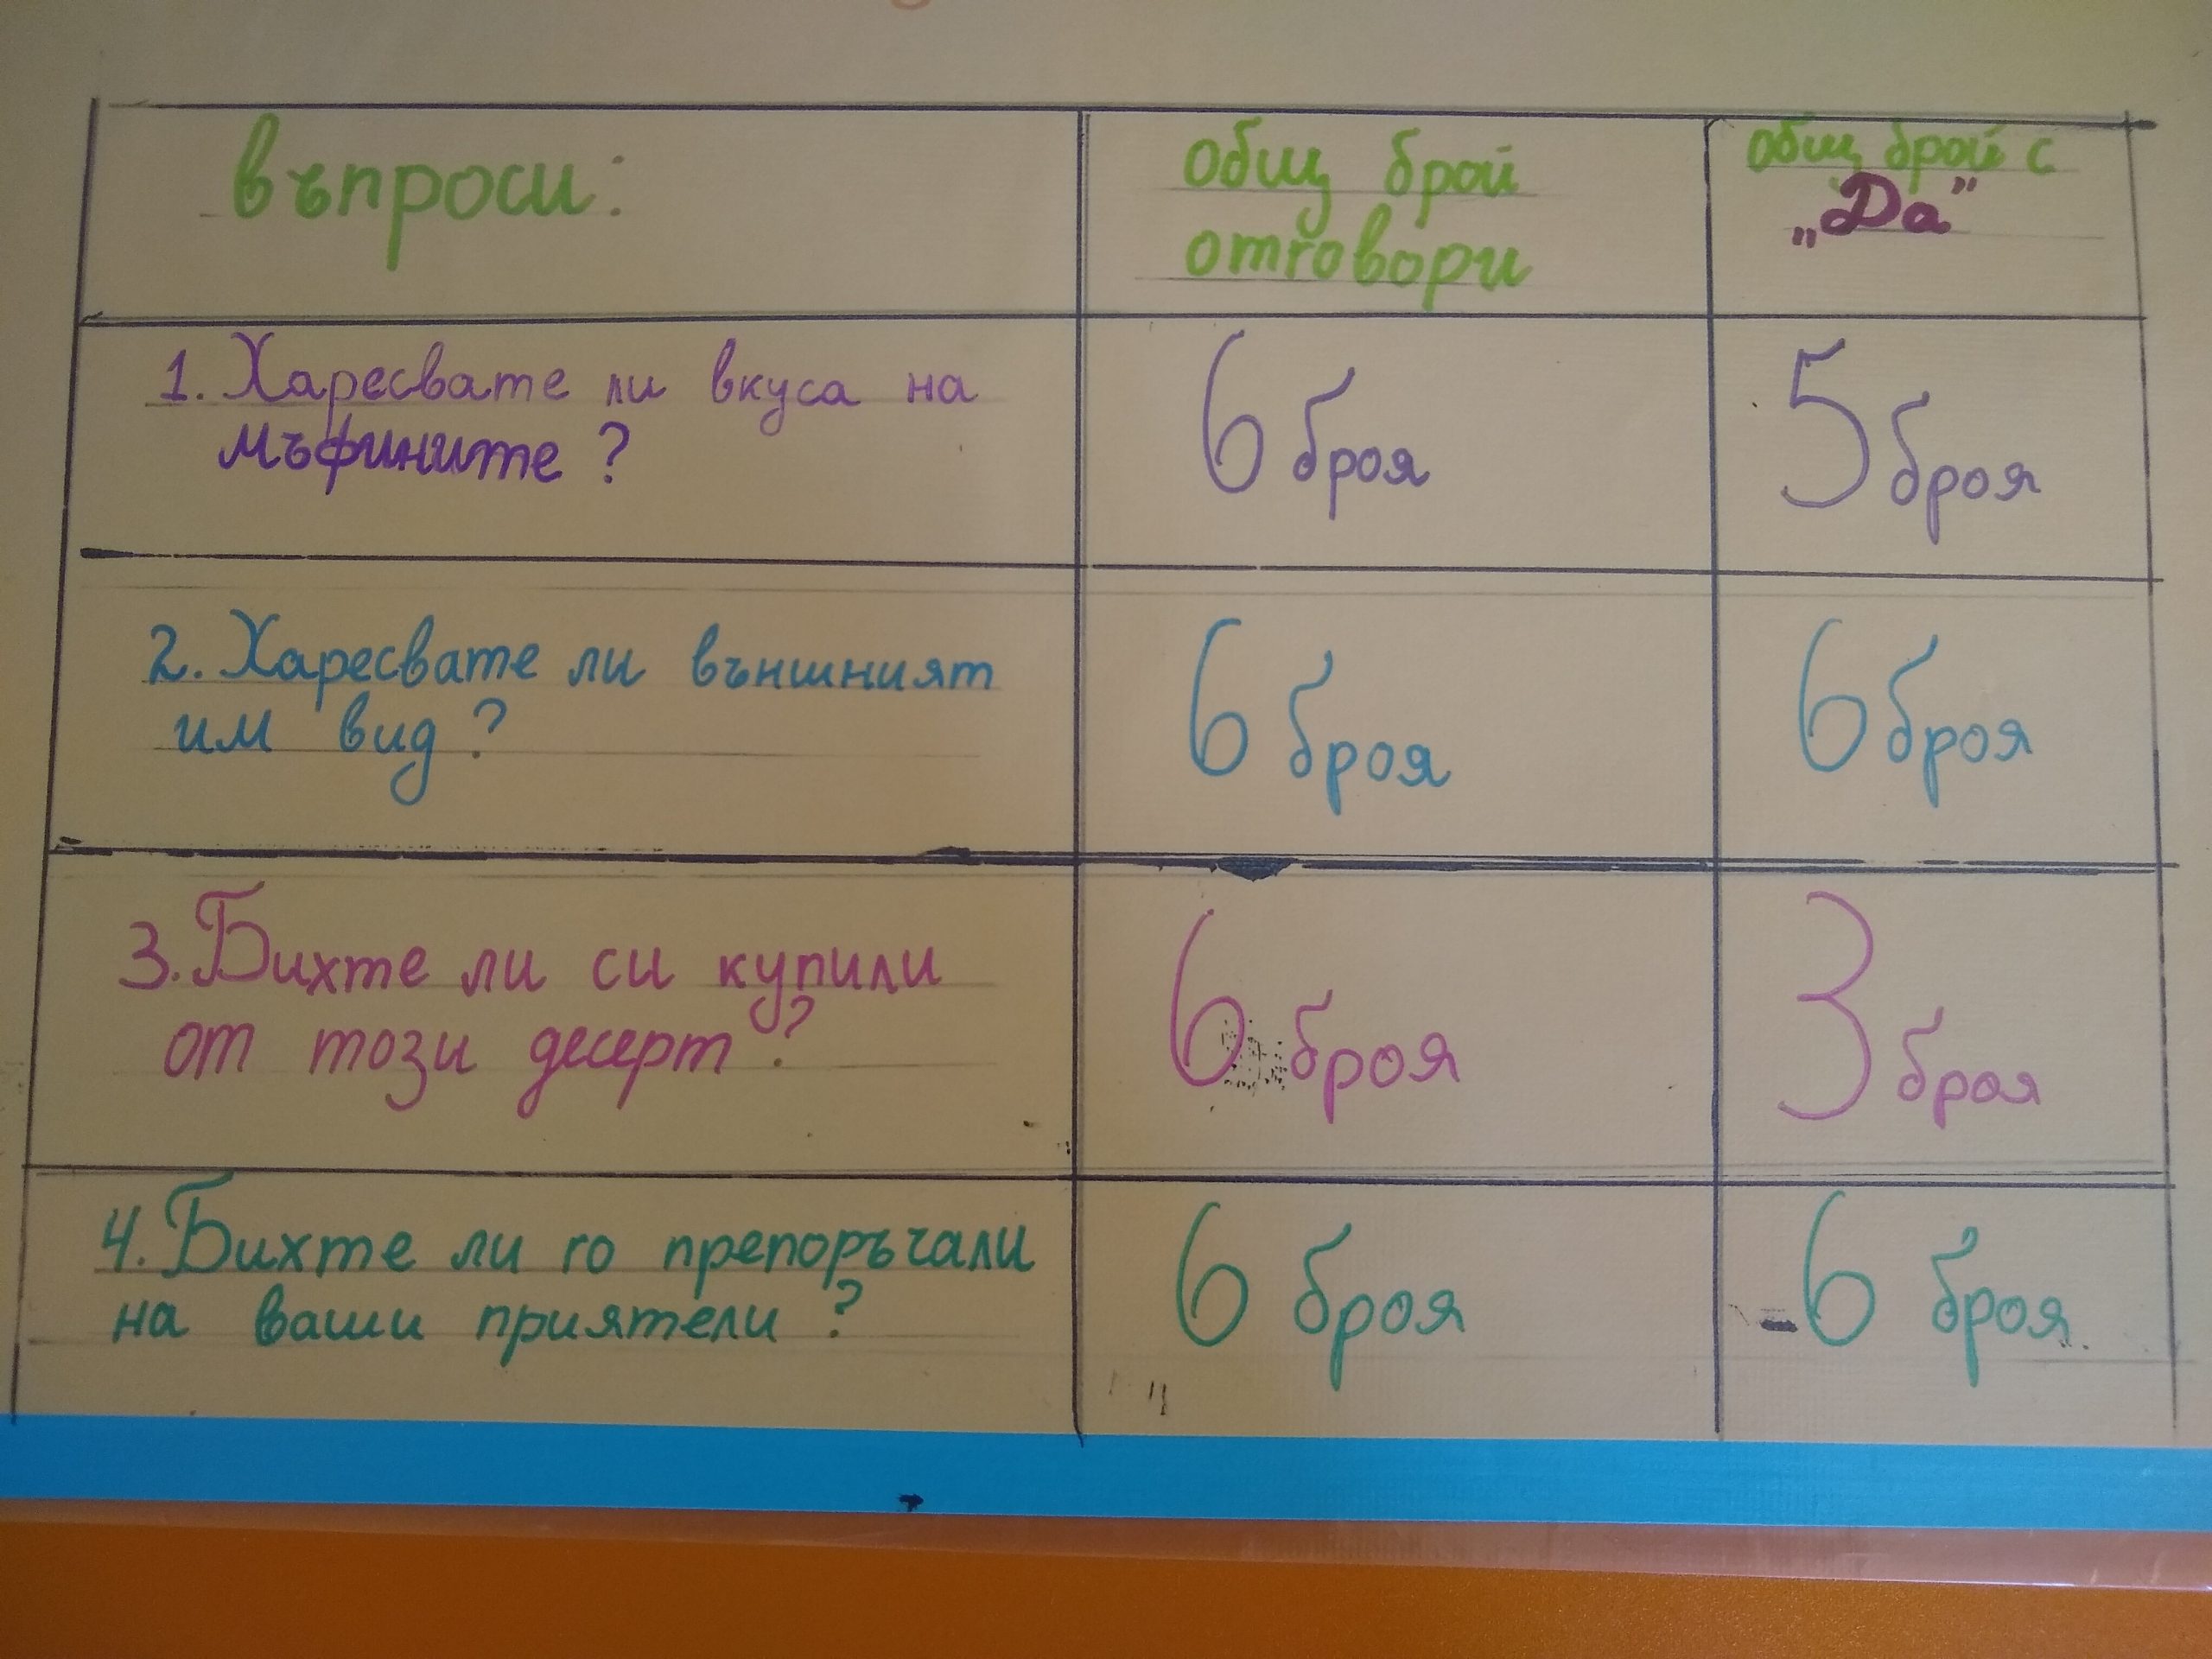 въпроси:
общ брой
отговори
общ брой с
„Да"
1. Харесвате ли вкуса на
мъфините ?
6 броя
5 броя
2. Харесвате ли външният
им вид ?
6 броя
6 броя
3. Бихте ли си купили
от този десерт ?
6 броя
3 броя
4. Бихте ли го препоръчали
на ваши приятели ?
6 броя
6 броя